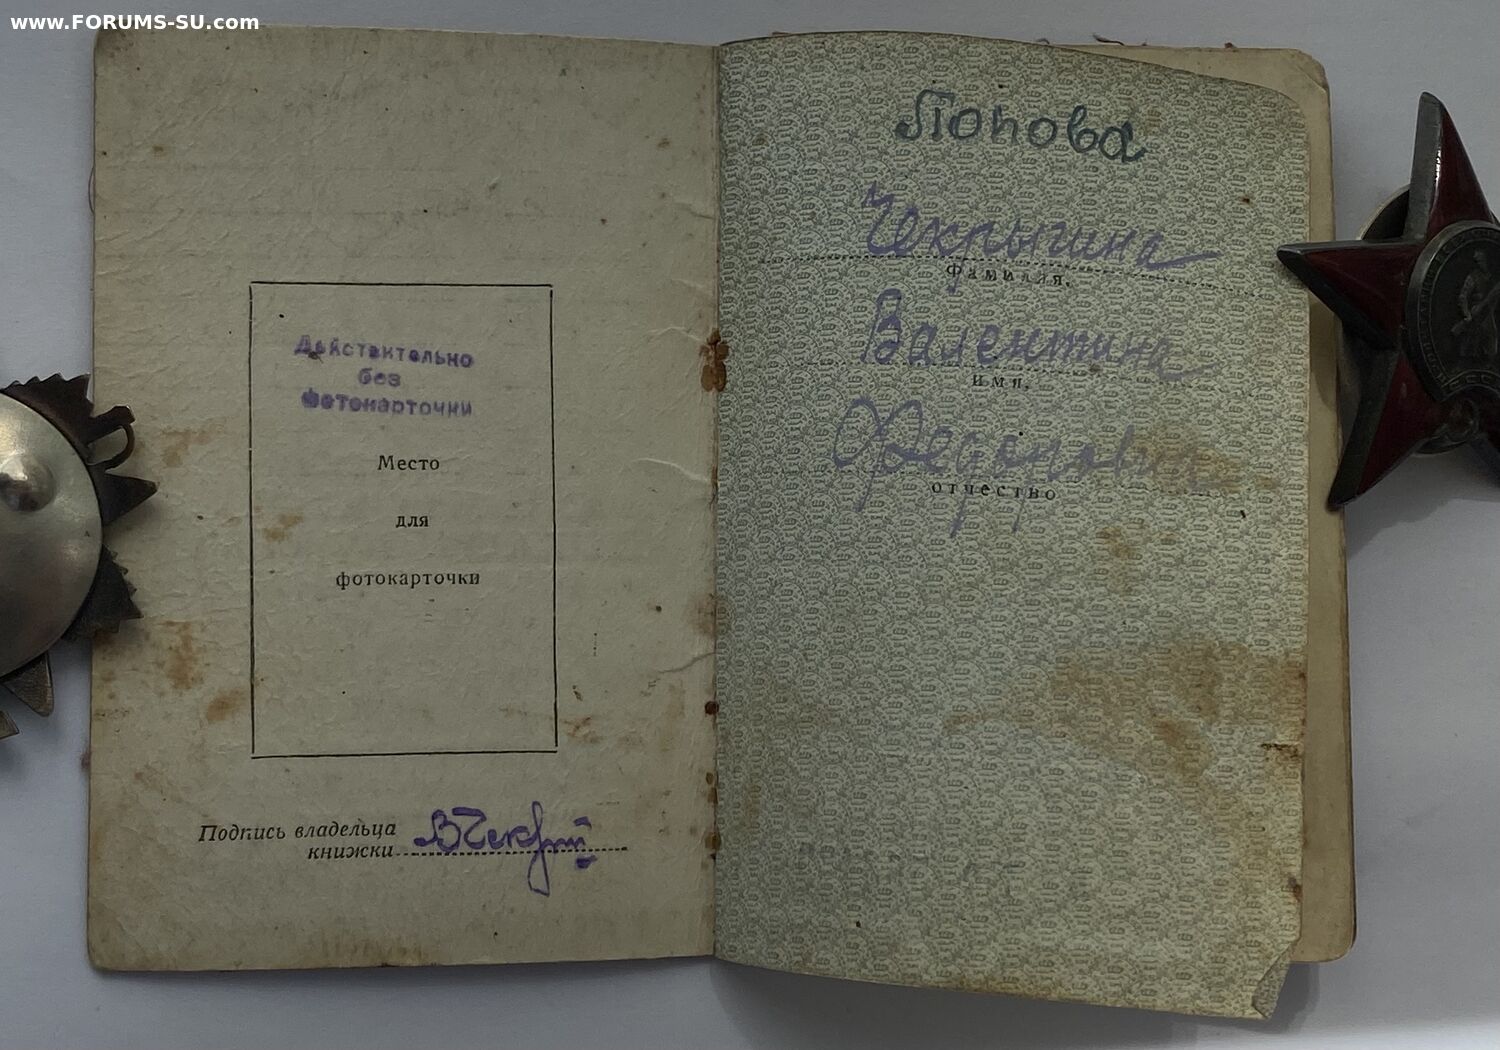 www.FORUMS-SU.com
Действительно
без
фотокарточки
Место
для
фотокарточки
Подпись владельца
книжки
ВЧекры
Попова
Чекрыгина
фамилия,
Валентина
имя,
Федоровна
отчество